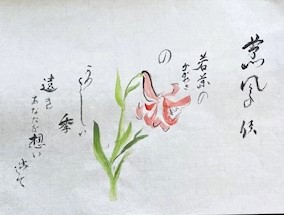 薫風の候
若葉の
かがやき
の
うつくしい
季
遠き
あなたを想い